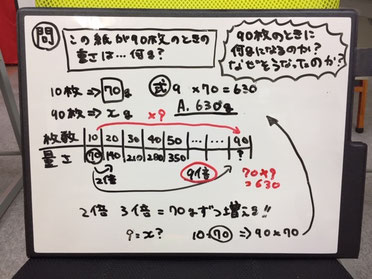 問
この紙が90枚のときの
重さは…何g?
90枚のときに
何gになるのか?
なぜそうなったのか?
10枚⇒70g
式 9×70=630
90枚⇒xg
A.630g
×9
枚数 10 20 30 40 50 … … 90
重さ 70 140 210 280 350 ?
2倍
9倍
70×9
=630
2倍 3倍=70gずつ増える!!
9=x?
10→70 ⇒90×70